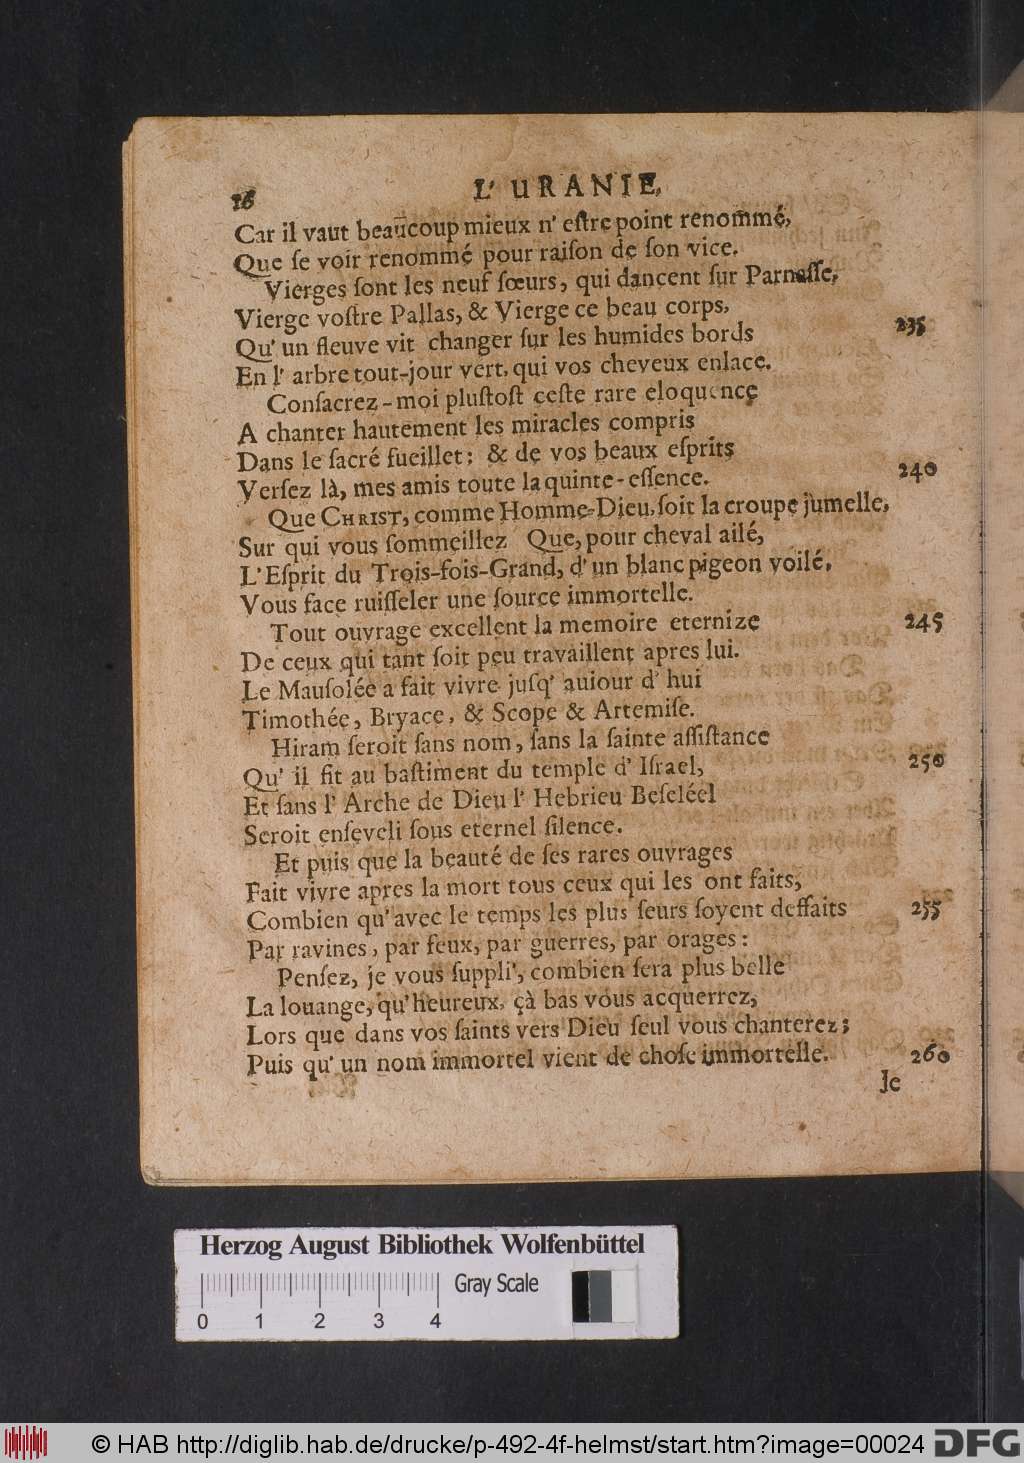 16 L' URANIE,
Car il vaut beaucoup mieux n' eſtre point renommé,
Que ſe voir renommé pour raiſon de ſon vice.
Vierges ſont les neuf ſœurs, qui dancent ſur Parnaſſe,
Vierge voſtre Pallas, & Vierge ce beau corps,
Qu' un fleuve vit changer ſur les humides bords 235
En l' arbre tout-jour vert, qui vos cheveux enlace.
Conſacrez-moi pluſtoſt ceſte rare eloquence
A chanter hautement les miracles compris
Dans le ſacré fueillet; & de vos beaux eſprits
Verſez là, mes amis toute la quinte-eſſence. 240
Que CHRIST, comme Homme-Dieu, ſoit la croupe jumelle,
Sur qui vous ſommeillez Que, pour cheval ailé,
L'Eſprit du Trois-fois-Grand, d' un blanc pigeon voilé,
Vous face ruiſſeler une ſource immortelle.
Tout ouvrage excellent la memoire eternize 245
De ceux qui tant ſoit peu travaillent apres lui.
Le Mauſolée a fait vivre juſq' auiour d' hui
Timothée, Bryace, & Scope & Artemiſe.
Hiram ſeroit ſans nom, ſans la ſainte aſſiſtance
Qu' il fit au baſtiment du temple d' Iſrael, 250
Et ſans l' Arche de Dieu l' Hebrieu Beſeléel
Seroit enſeveli ſous eternel ſilence.
Et puis que la beauté de ſes rares ouvrages
Fait vivre apres la mort tous ceux qui les ont faits,
Combien qu' avec le temps les plus ſeurs ſoyent deffaits 255
Par ravines, par feux, par guerres, par orages:
Penſez, je vous ſuppli', combien ſera plus belle
La louange, qu' heureux, çà bas vous acquerrez,
Lors que dans vos ſaints vers Dieu ſeul vous chanterez;
Puis qu' un nom immortel vient de choſe immortelle. 260
Je
Herzog August Bibliothek Wolfenbüttel
Gray Scale
0 1 2 3 4
© HAB http://diglib.hab.de/drucke/p-492-4f-helmst/start.htm?image=00024 DFG